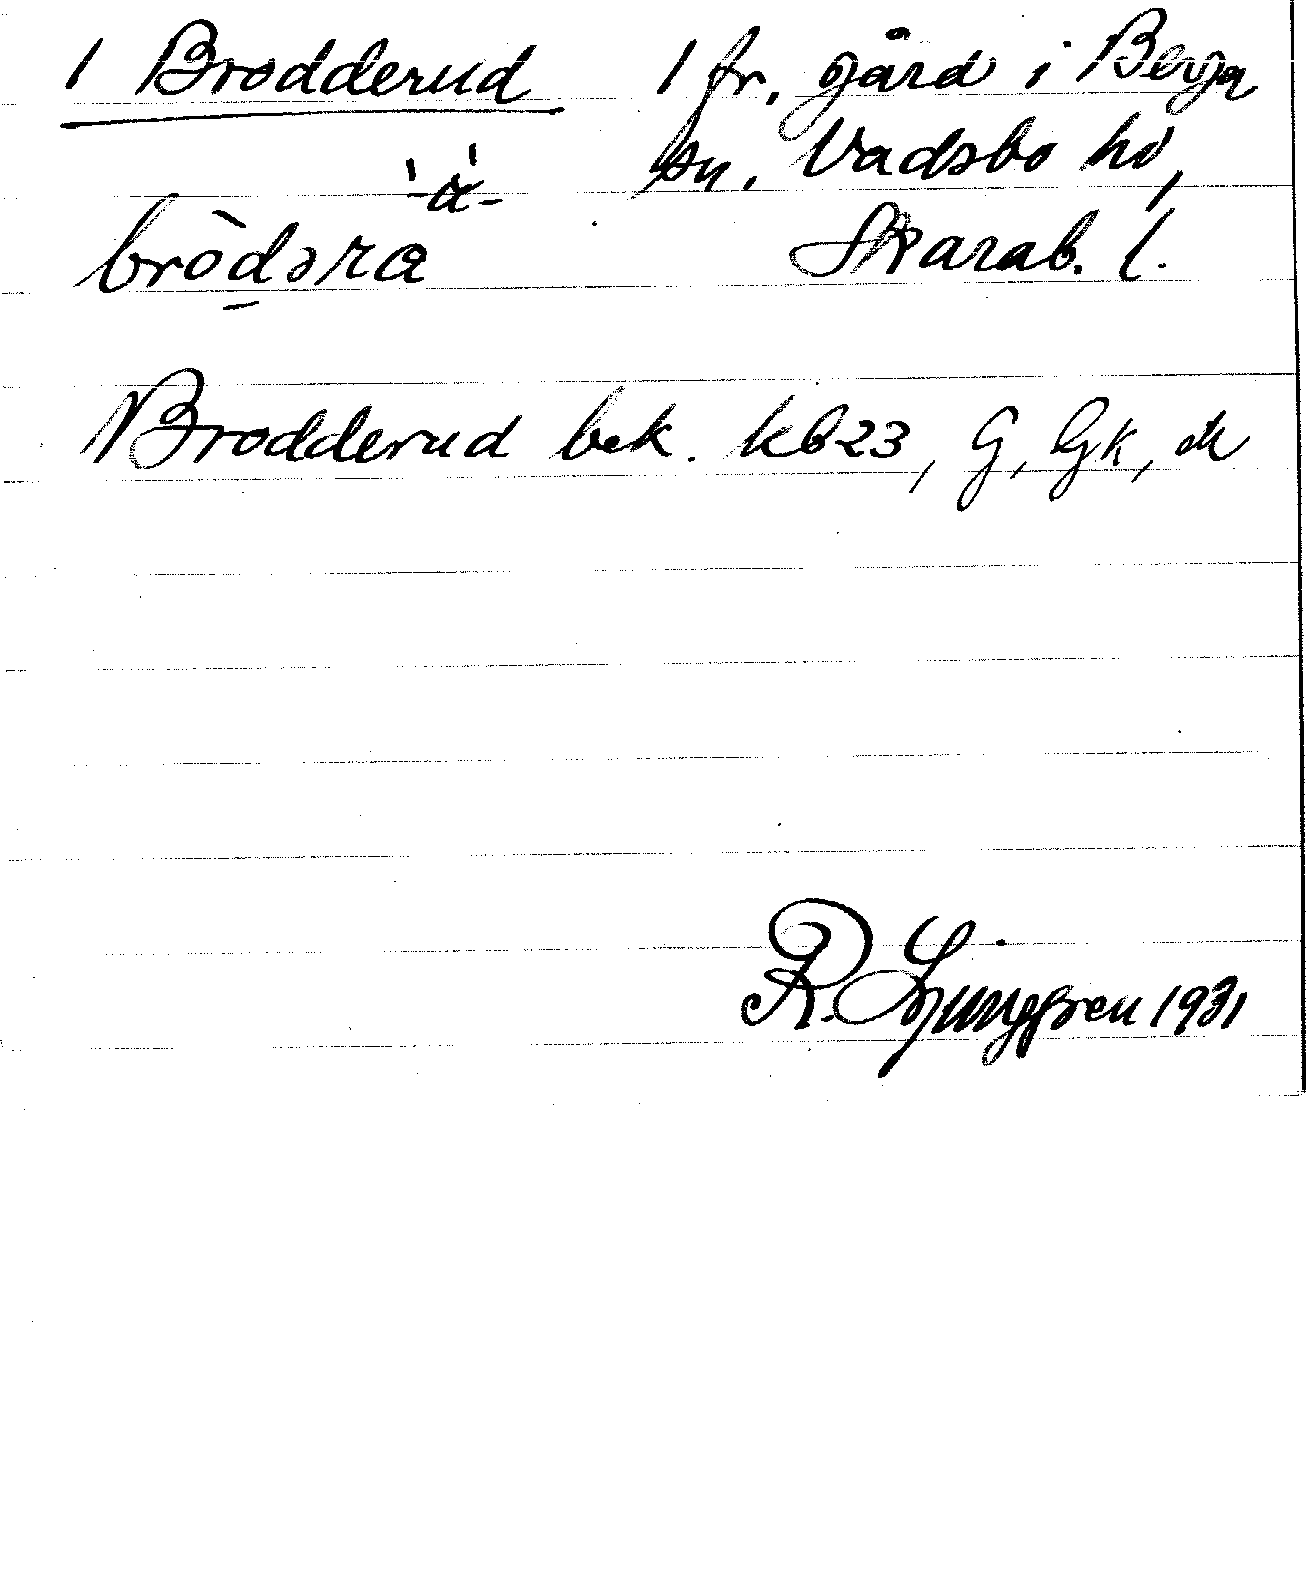 1 Brodderud 1 fr. gård i Berga
sn. Vadsbo hd,
-ä-
brödəra Skarab. l.
Brodderud bek. kb23, G, Gk, M
R. Ljunggren 1931